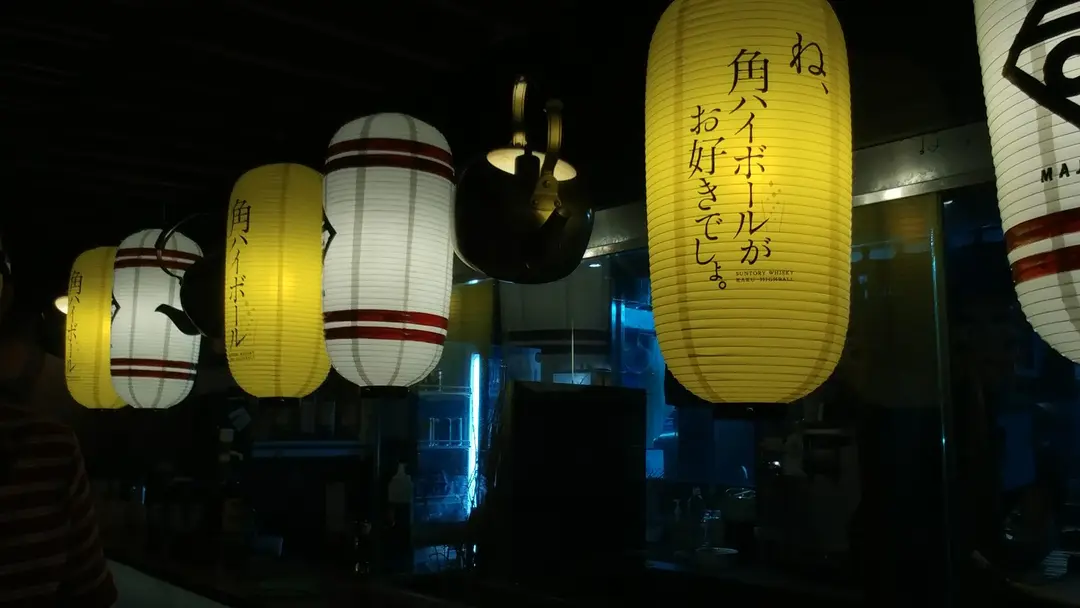 ね、
角ハイボールが
お好きでしょ。
SUNTORY WHISKY
KAKU-HIGHBALL
角ハイボール
角ハイボール